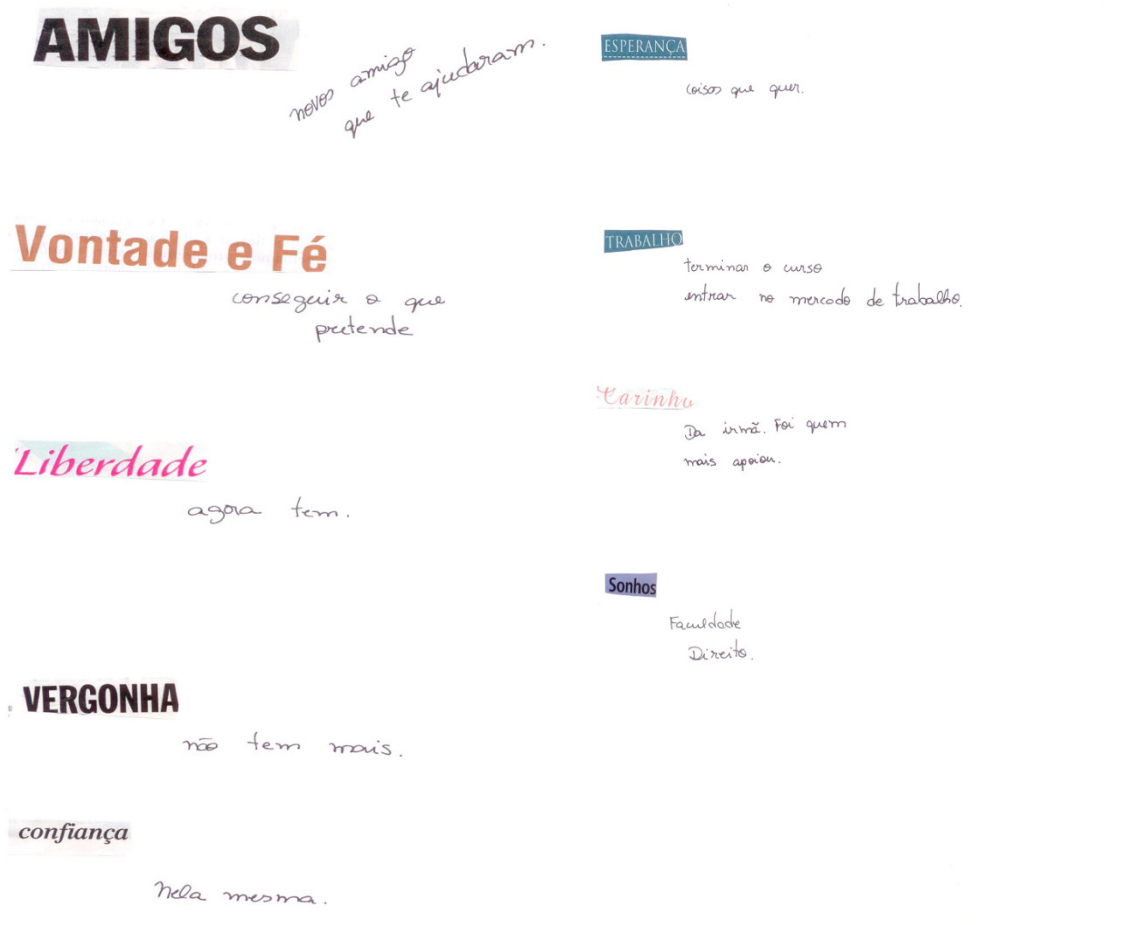 AMIGOS
novos amigo
que te ajudaram.
Vontade e Fé
conseguir o que
pretende
Liberdade
agora tem.
VERGONHA
não tem mais.
confiança
nela mesma.
ESPERANÇA
coisas que quer.
TRABALHO
terminar o curso
entrar no mercado de trabalho.
Carinho
Da irmã. Foi quem
mais apoiou.
Sonhos
Faculdade
Direito.